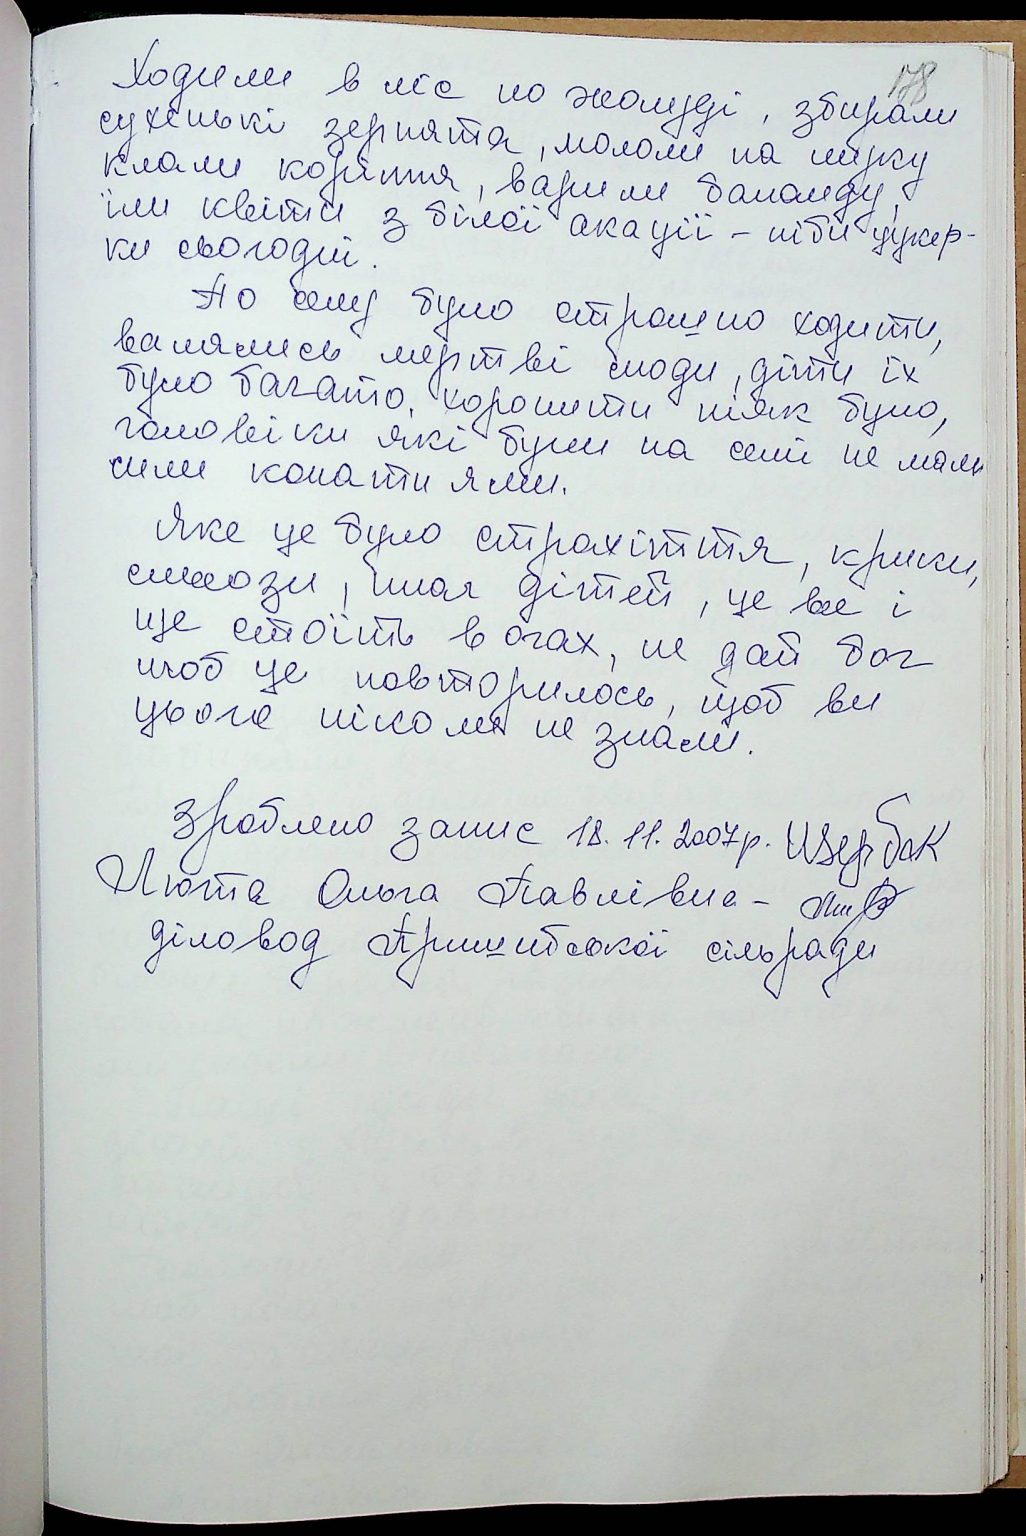 178
Ходили в ліс по жолуді, збирали
сухенькі зернята, мололи на муку
клали коріння, варили баланду,
їли квіти з білої акації – ніби цукер-
ки сьогодні.
По селу було страшно ходити,
валялись мертві люди, діти їх
було багато, хоронити ніяк було,
чоловіки які були на селі не мали
сили копати ями.
Яке це було страхіття, крики,
сльози, плач дітей, це все і
ще стоїть в очах, не дай бог
щоб це повторилось, щоб ви
цього ніколи не знали.
Зроблено запис 18.11.2007р. Щербак
Люта Ольга Павлівна –
діловод сільради